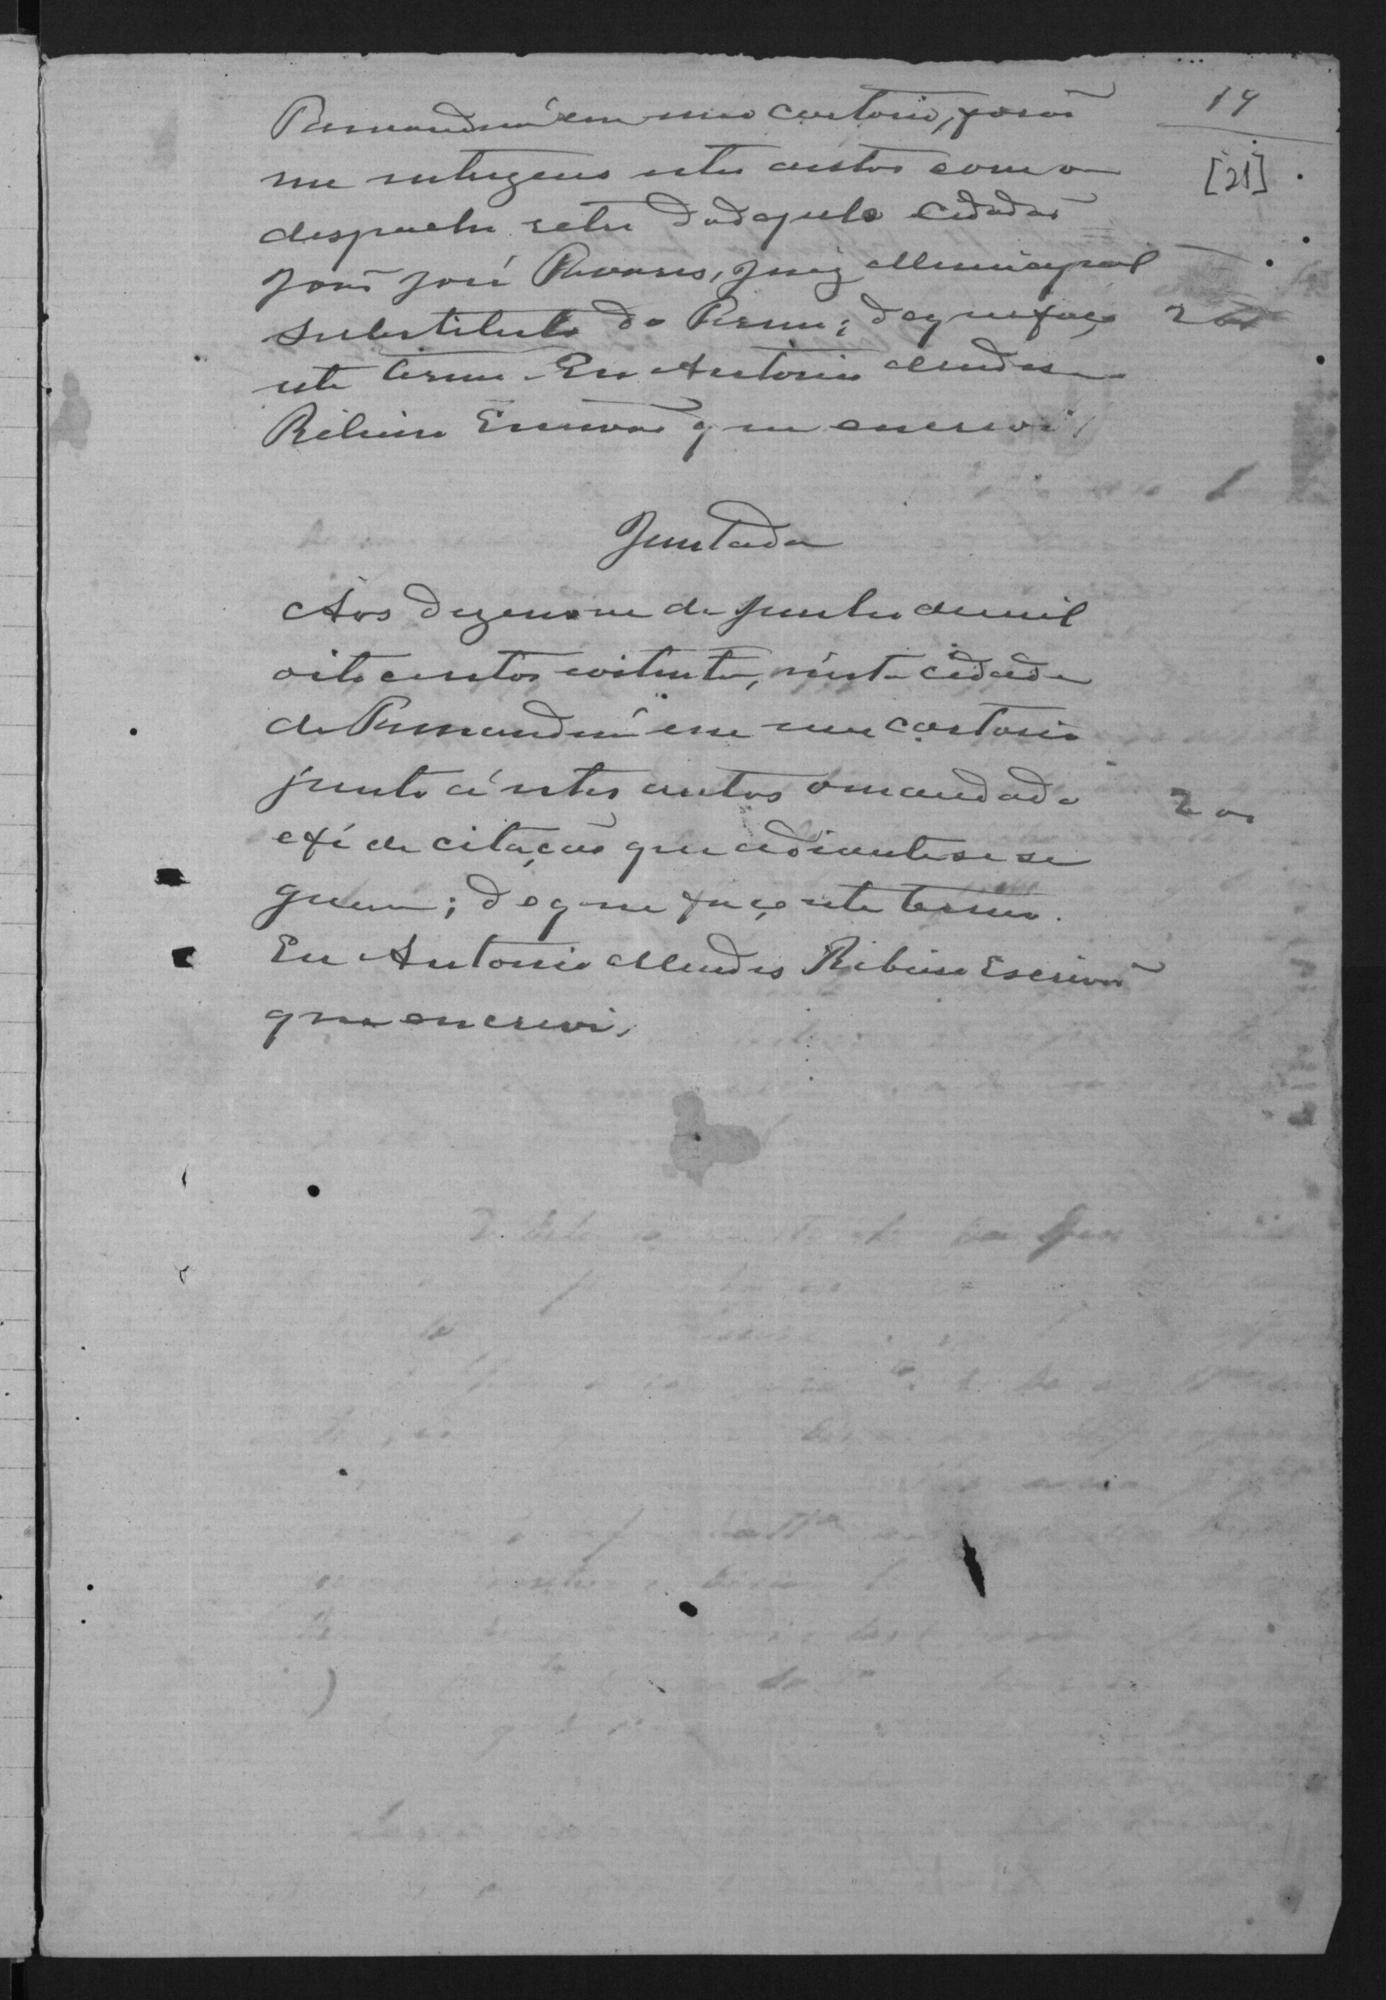 19
[21]
Pumandua em meu cartorio, forão
me entregues estes autos com o
despacho retro dado pelo cidadão
João José Pavares, Juiz Municipal
substituto do Termo; do que faço 200
este termo. Eu Antonio Mendes
Ribeiro Escrivão que escrevi
Juntada
Aos dezenove de Junho de mil
oito centos e oitenta, n'esta cidade
de em meu cartorio
junto á estes autos o mandado 200
e fé de citação que adiante se se
guem; do que faço este termo.
Eu Antonio Mendes Ribeiro Escrivão
que escrevi,